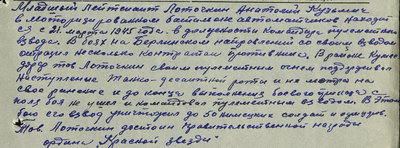 Младший лейтенант Лоточкин Анатолий Кузьмич
в моторизированном батальоне автоматчиков находит
ся с 21 марта 1945 года. в должности командира пулеметного
взвода. В боях на Берлинском направлении со своим взводом
отразил несколько контратак противника. В районе
тов Лоточкин своим пулеметным огнем поддерживал
наступление танко-десантной роты и не смотря на
свое ранение и до конца выполнения боевого приказа с
поля боя не ушел и командовал пулеметным взводом. В этом
бою его взвод уничтожил до 50 немецких солдат и офицеров.
Тов. Лоточкин достоин правительственной награды
ордена "Красной звезды"